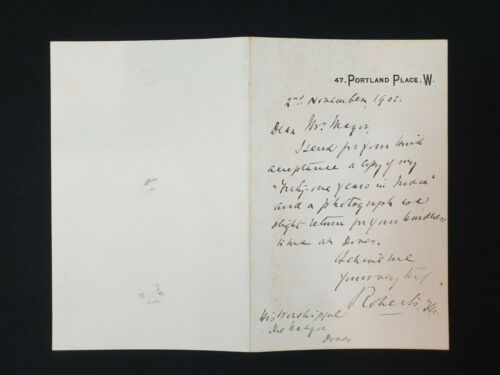 47, PORTLAND PLACE. W.
2nd November, 1902.
Dear Mr. Mayor,
I send for your kind
acceptance a copy of my
"Forty-one years in India"
and a photograph as a
slight return for your kindness
to me at Dover.
Believe me
Yours very truly
Roberts
His Worshipful
The Mayor
Dover